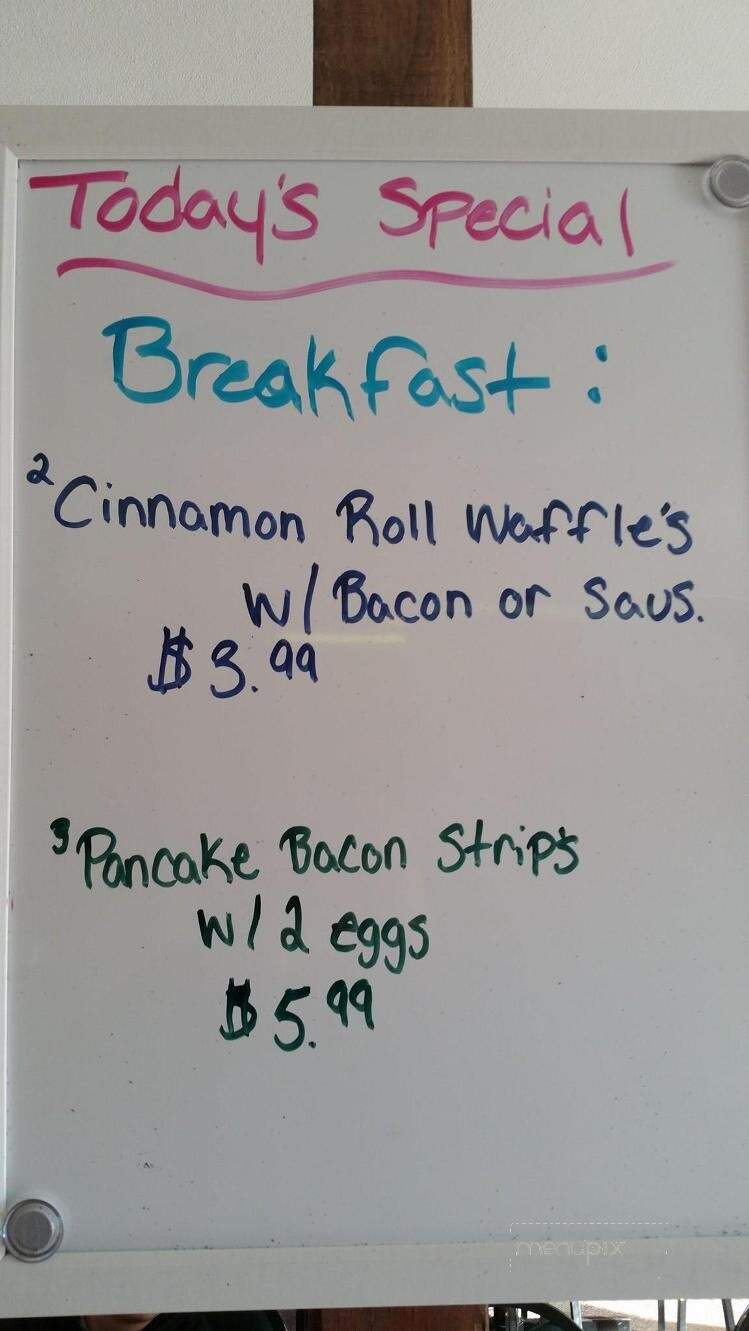 Today's Special
Breakfast:
2 Cinnamon Roll Waffle's
w/ Bacon or Saus.
$3.99
3 Pancake Bacon Strip's
w/ 2 eggs
$5.99
menupix